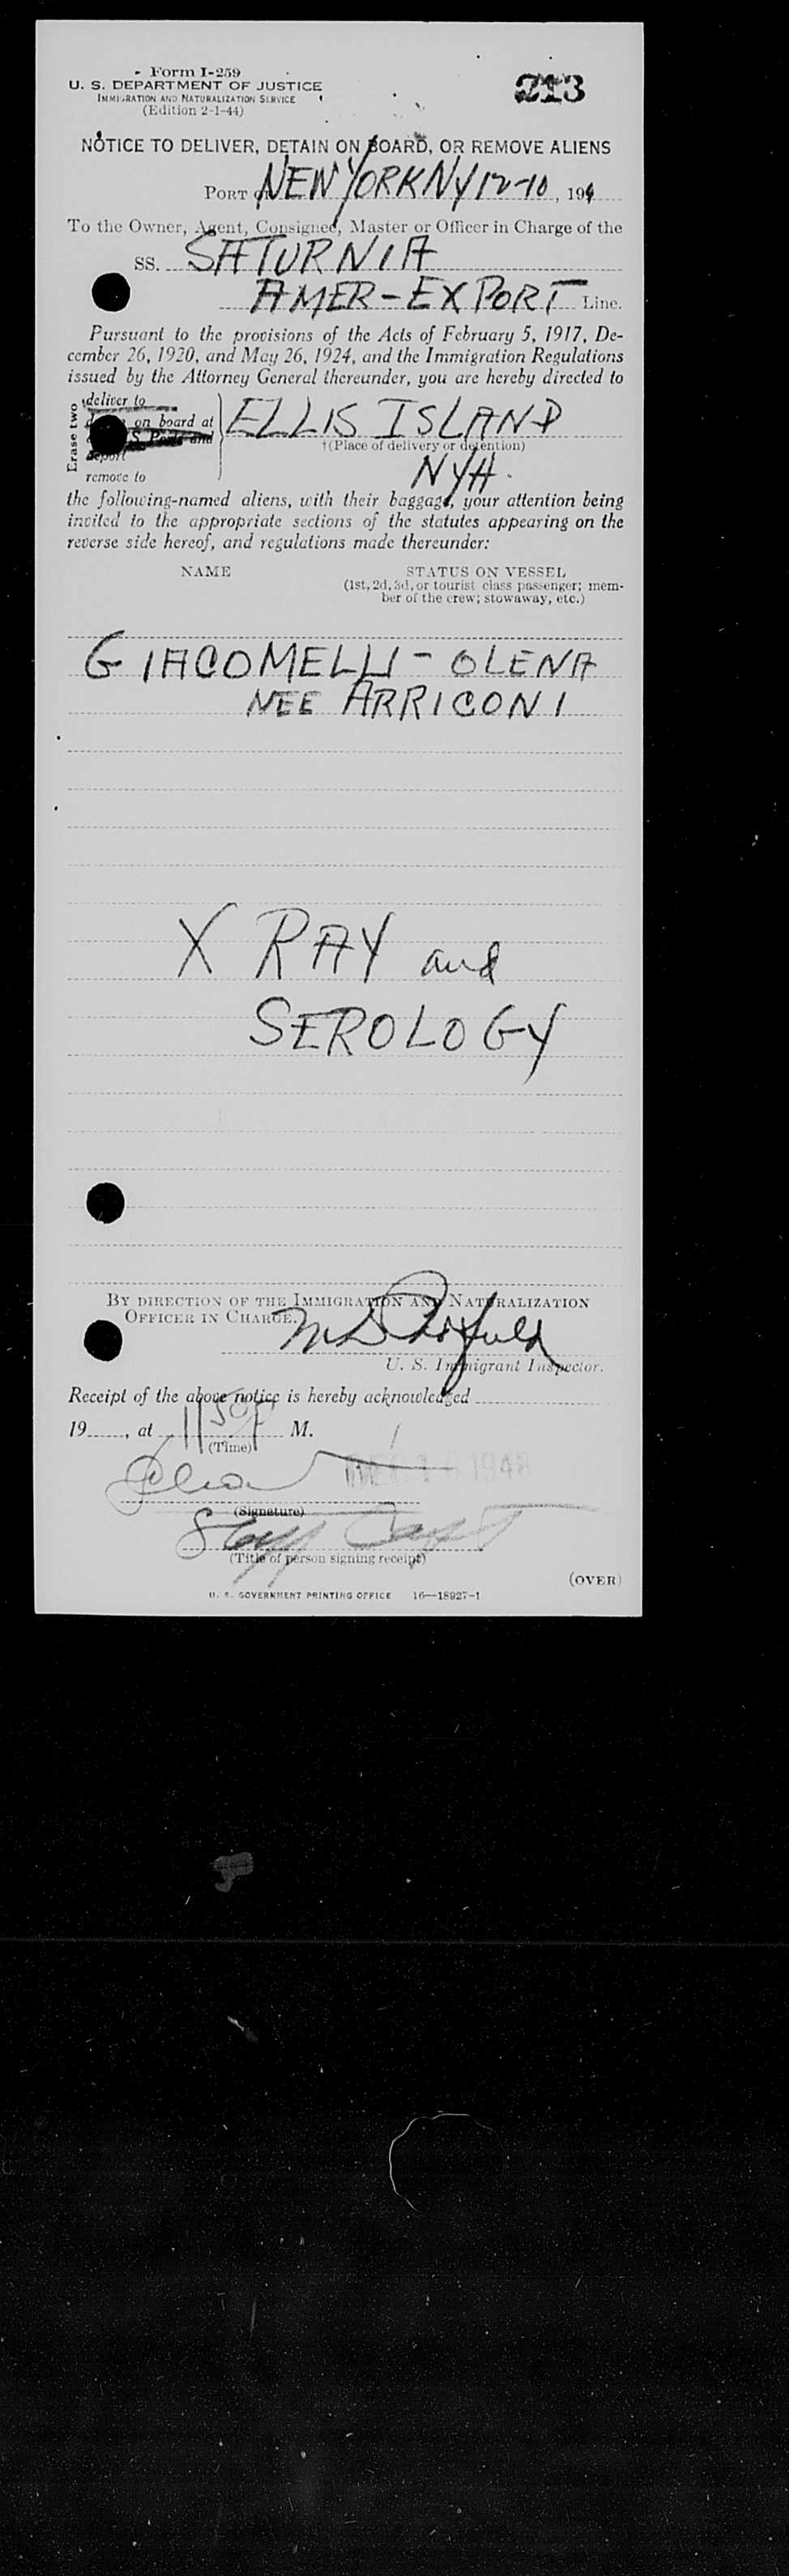 Form I-259
213
U. S. DEPARTMENT OF JUSTICE
IMMIGRATION AND NATURALIZATION SERVICE
(Edition 2-1-44)
NOTICE TO DELIVER, DETAIN ON BOARD, OR REMOVE ALIENS
PORT OF NEW YORK NY 12-10, 194
To the Owner, Agent, Consignee, Master or Officer in Charge of the
SS. SATURNIA
AMER-EXPORT Line.
Pursuant to the provisions of the Acts of February 5, 1917, De-
cember 26, 1920, and May 26, 1924, and the Immigration Regulations
issued by the Attorney General thereunder, you are hereby directed to
Erase two
deliver to
on board at ELLIS ISLAND
and
†(Place of delivery or detention)
deport
NYH.
remove to
the following-named aliens, with their baggage, your attention being
invited to the appropriate sections of the statutes appearing on the
reverse side hereof, and regulations made thereunder:
NAME STATUS ON VESSEL
(1st, 2d, 3d, or tourist class passenger; mem-
ber of the crew; stowaway, etc.)
GIACOMELLI - OLENA
NEE ARRICONI
X RAY and
SEROLOGY
BY DIRECTION OF THE IMMIGRATION AND NATURALIZATION
OFFICER IN CHARGE.
U. S. Immigrant Inspector.
Receipt of the above notice is hereby acknowledged
19, at 1150 P M.
(Time)
(Signature)
(Title of person signing receipt)
(OVER)
U. S. GOVERNMENT PRINTING OFFICE 16—18927-1